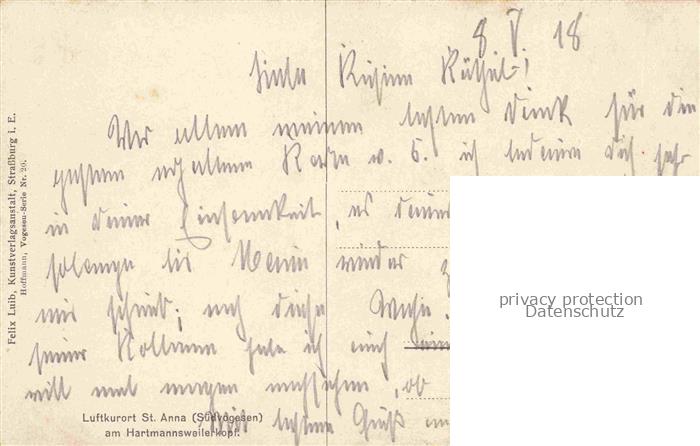 8 V. 18
Liebe Kusine Käthel!
Vor allem meinen besten Dank für die
gestern erhaltene Karte v. 5. ich bedaure dich sehr
in deiner Einsamkeit, es dauert
solange bis Marie wieder
mir scheint; auch diese Woche.
seiner Kollegen habe ich auch
will mal morgen nachsehen, ob
Mit besten Gruß
Felix Luib, Kunstverlagsanstalt, Straßburg i. E.
Hoffmann, Vogesen-Serie Nr. 20.
Luftkurort St. Anna (Südvogesen)
am Hartmannsweilerkopf.
privacy protection
Datenschutz